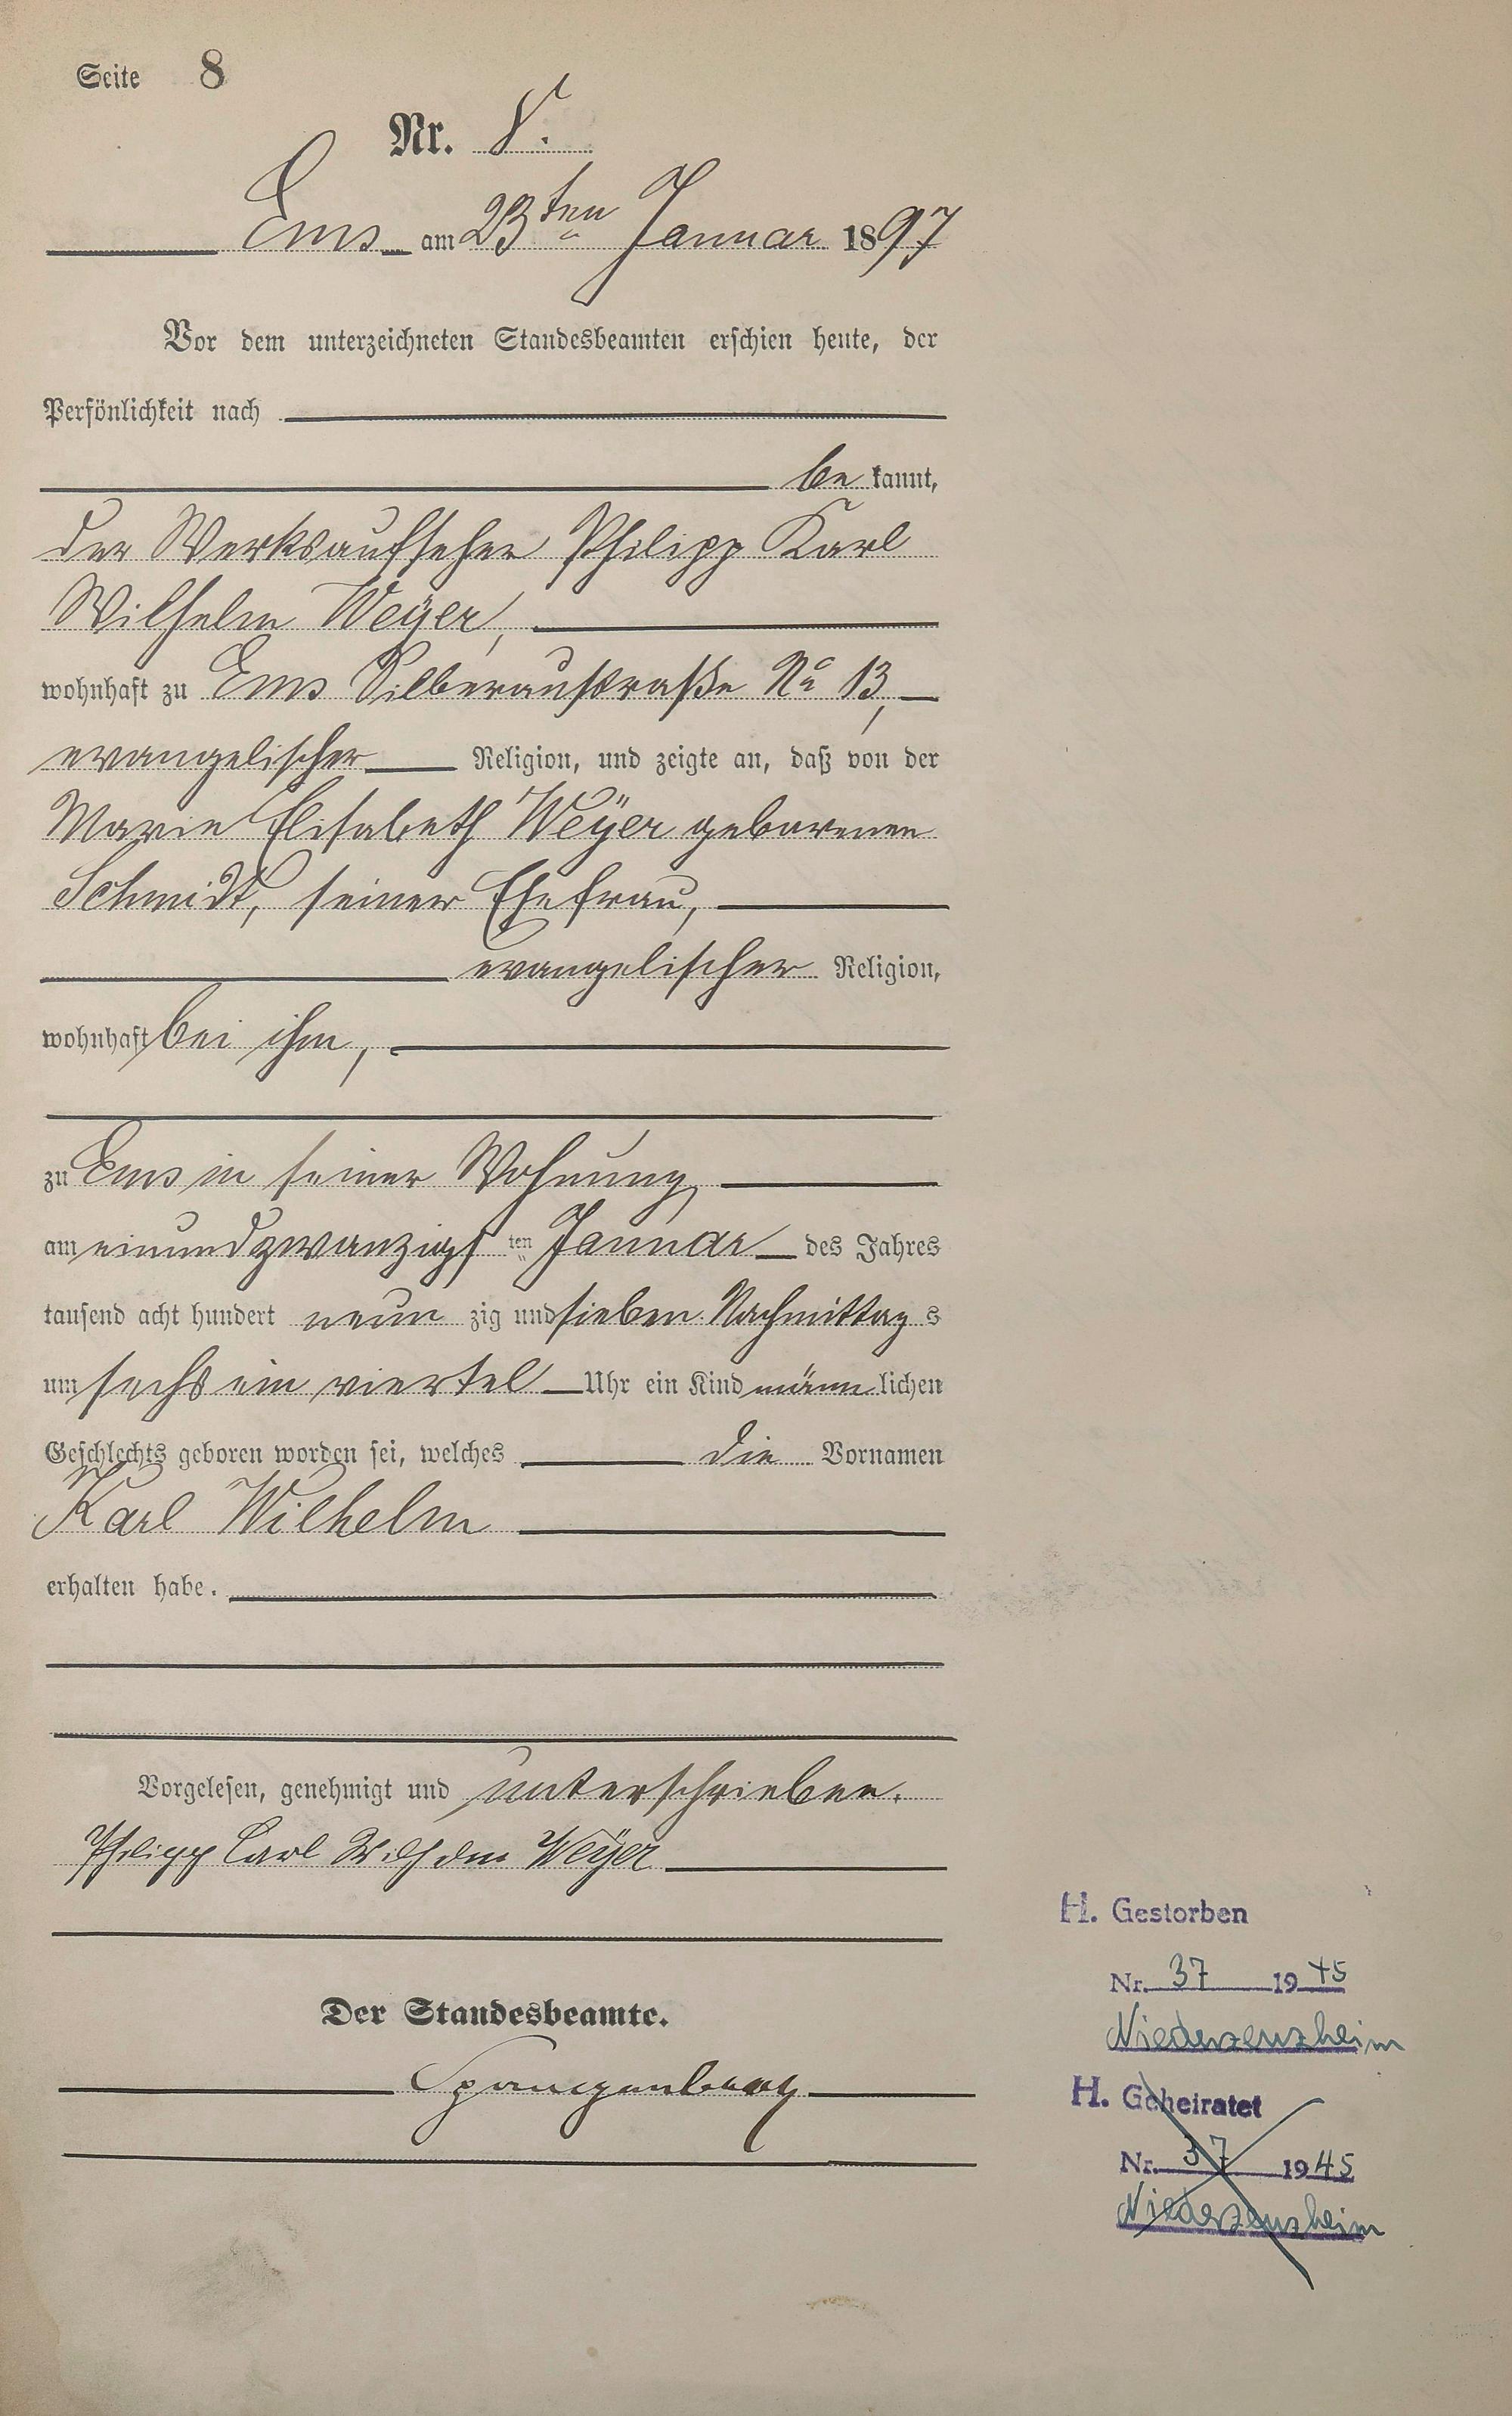 Seite 8
Nr. 8.
Ems am 23ten Januar 1897
Vor dem unterzeichneten Standesbeamten erschien heute, der
Persönlichkeit nach
be kannt,
der Werksaufseher Philipp Karl
Wilhelm Weÿer,
wohnhaft zu Ems Silberaustraße No 13,
evangelischer Religion, und zeigte an, daß von der
Marie Elisabeth Weÿer geborenen
Schmidt, seiner Ehefrau,
evangelischer Religion,
wohnhaft bei ihm,
zu Ems in seiner Wohnung
am einundzwanzigsten Januar des Jahres
tausend acht hundert neun zig und sieben Nachmittag s
um sechs ein viertel Uhr ein Kind männ lichen
Geschlechts geboren worden sei, welches die Vornamen
Karl Wilhelm
erhalten habe.
Vorgelesen, genehmigt und unterschrieben.
Philipp Carl Wilhelm Weÿer
Der Standesbeamte.
Spangenberg
H. Gestorben
Nr. 37 1945
Niederzeuzheim
H. Geheiratet
Nr. 37 1945
Niederzeuzheim